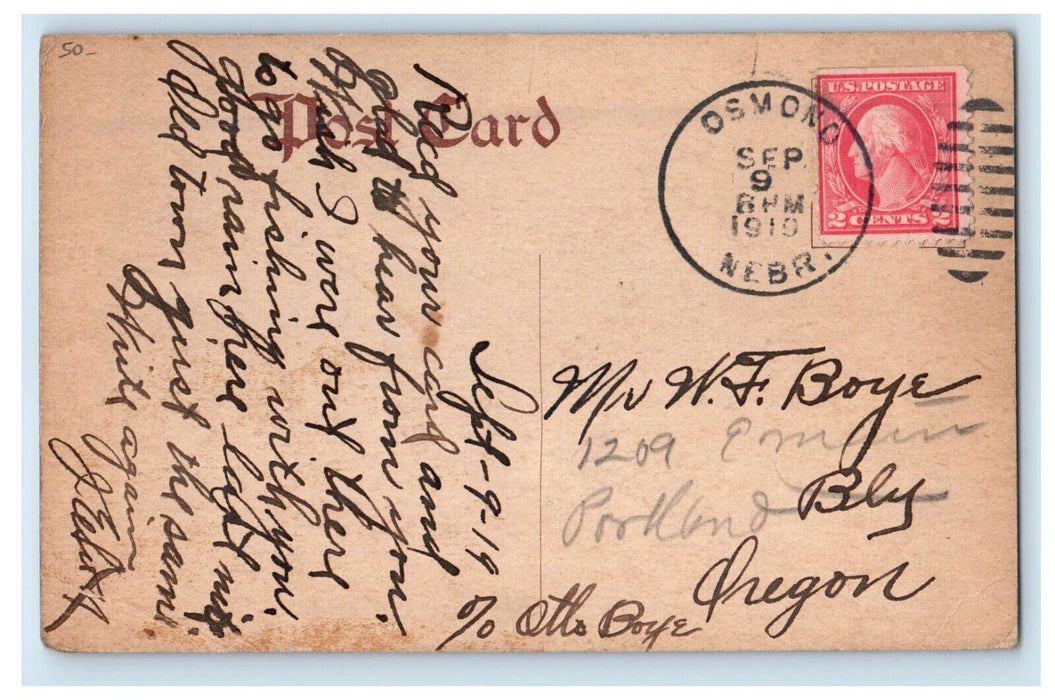 50-
Post Card
OSMOND
SEP
9
6 PM
1919
NEBR.
U.S. POSTAGE
2 CENTS 2
Sept-9-19
Recd your card and
glad to hear from you.
Wish I were out there
to go fishing with you.
good rain here last nite
old town just the same
Write again
Mr W. F. Boye
1209 E main
Portland
Bly
Oregon
c/o Otto Boye